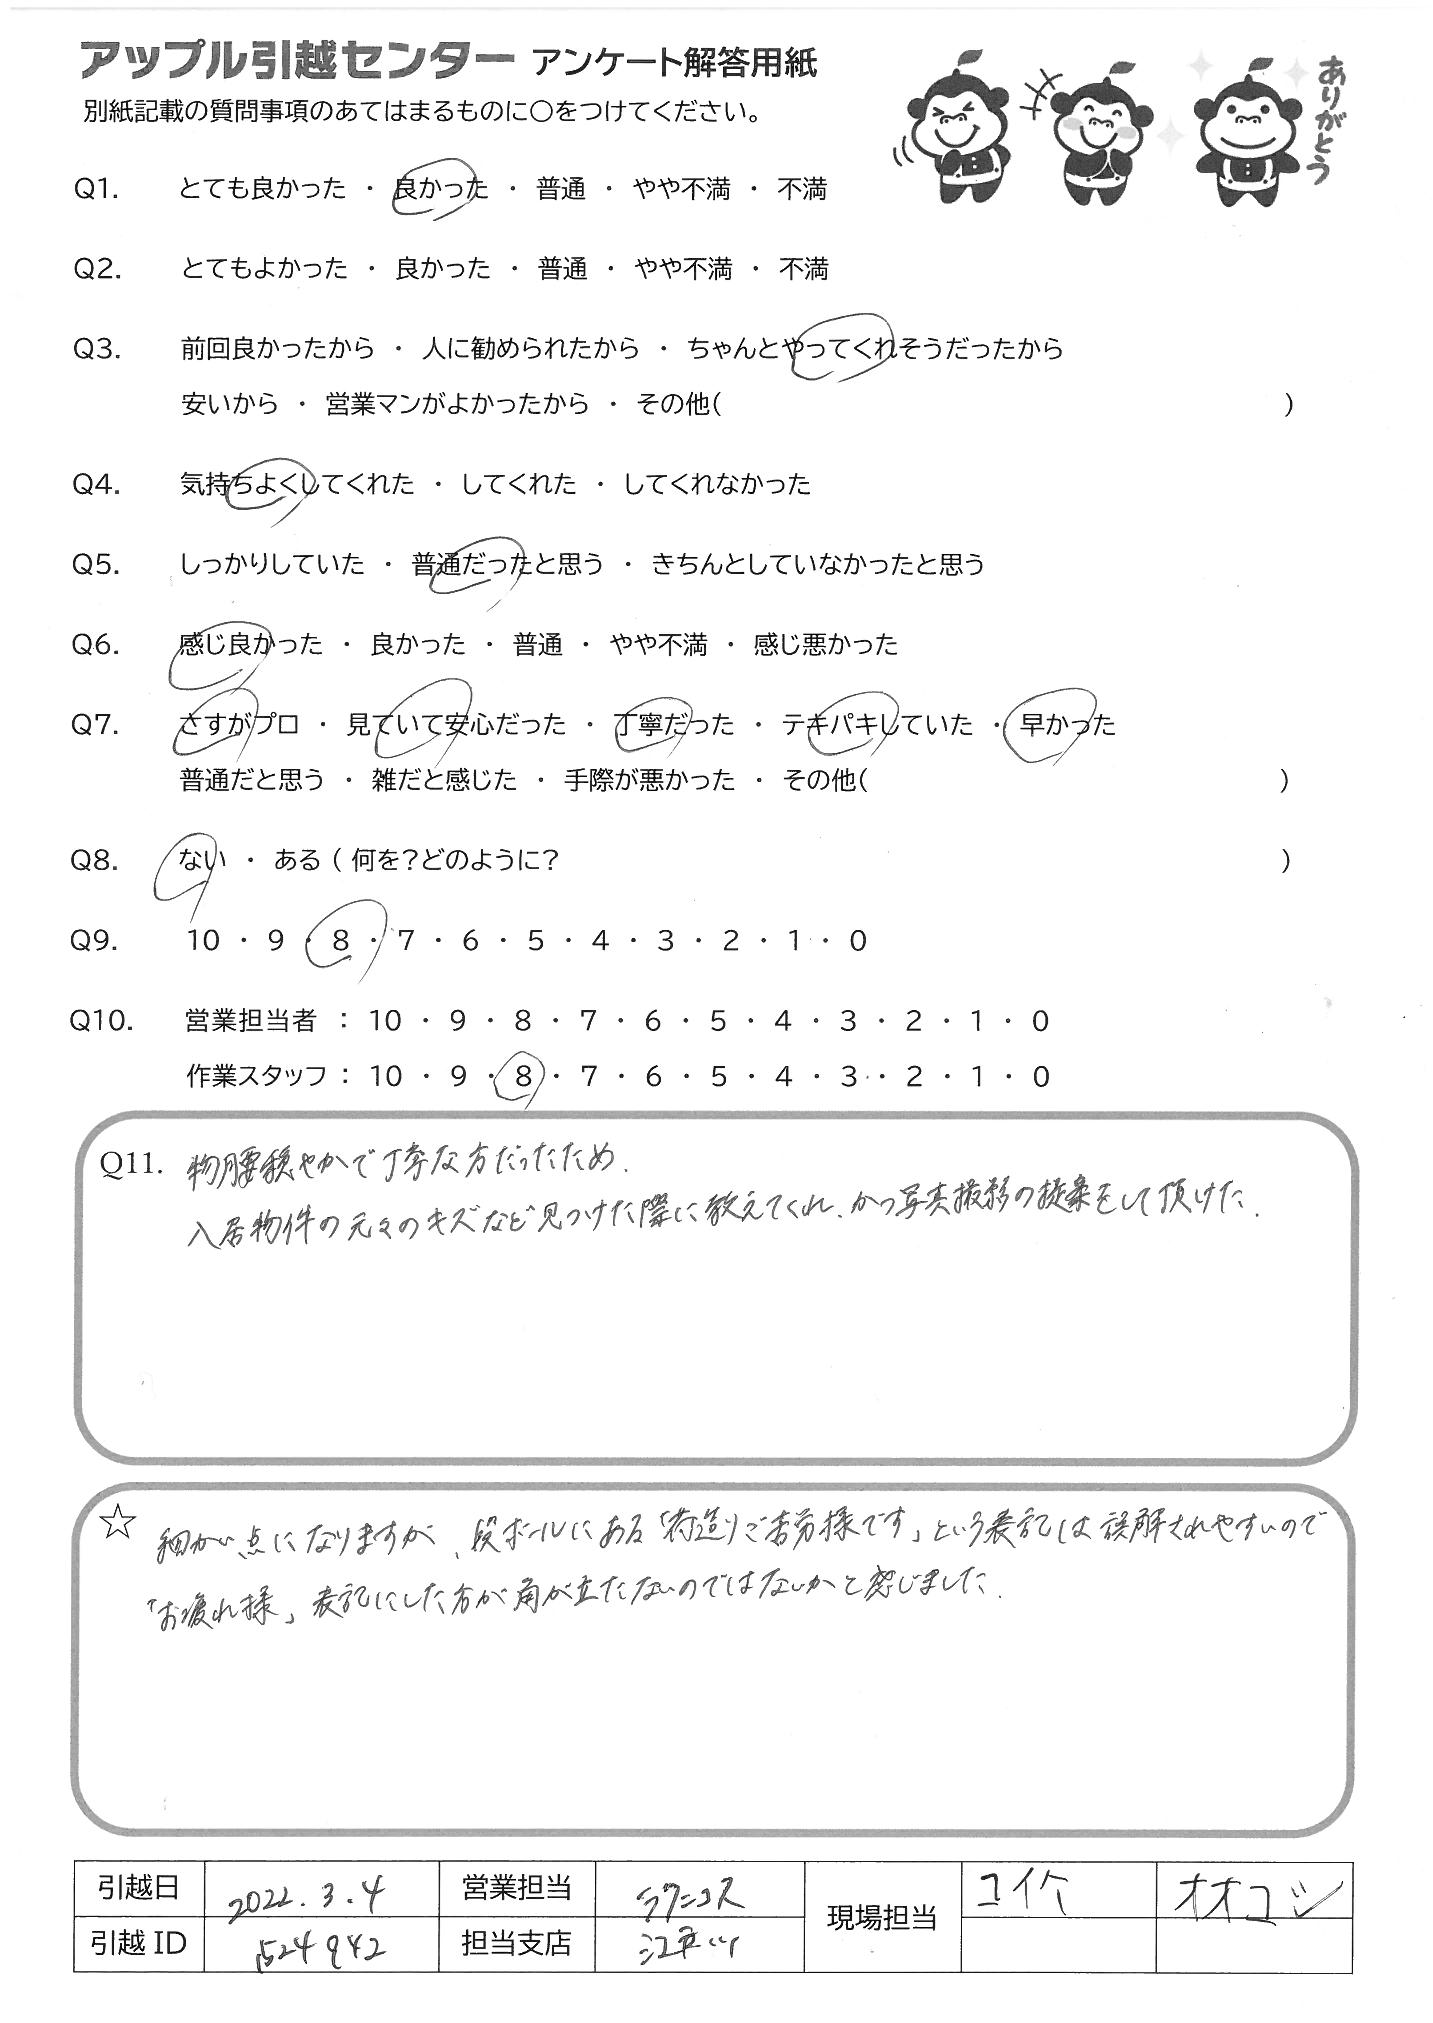 アップル引越センター アンケート解答用紙
別紙記載の質問事項のあてはまるものに〇をつけてください。
ありがとう
Q1. とても良かった ・ 良かった ・ 普通 ・ やや不満 ・ 不満
Q2. とてもよかった ・ 良かった ・ 普通 ・ やや不満 ・ 不満
Q3. 前回良かったから ・ 人に勧められたから ・ ちゃんとやってくれそうだったから
安いから ・ 営業マンがよかったから ・ その他( )
Q4. 気持ちよくしてくれた ・ してくれた ・ してくれなかった
Q5. しっかりしていた ・ 普通だったと思う ・ きちんとしていなかったと思う
Q6. 感じ良かった ・ 良かった ・ 普通 ・ やや不満 ・ 感じ悪かった
Q7. さすがプロ ・ 見ていて安心だった ・ 丁寧だった ・ テキパキしていた ・ 早かった
普通だと思う ・ 雑だと感じた ・ 手際が悪かった ・ その他( )
Q8. ない ・ ある ( 何を?どのように? )
Q9. 10 ・ 9 ・ 8 ・ 7 ・ 6 ・ 5 ・ 4 ・ 3 ・ 2 ・ 1 ・ 0
Q10. 営業担当者 : 10 ・ 9 ・ 8 ・ 7 ・ 6 ・ 5 ・ 4 ・ 3 ・ 2 ・ 1 ・ 0
作業スタッフ : 10 ・ 9 ・ 8 ・ 7 ・ 6 ・ 5 ・ 4 ・ 3 ・ 2 ・ 1 ・ 0
Q11. 物腰穏やかで丁寧な方だったため.
入居物件の元々のキズなど見つけた際に教えてくれ、かつ写真撮影の提案をして頂けた.
☆ 細かい点になりますが、段ボールにある「荷造りご苦労様です」という表記は誤解されやすいので
「お疲れ様」表記にした方が角が立たないのではないかと感じました.
引越日 2022.3.4 営業担当 現場担当 コイケ オオコシ
引越ID 1524942 担当支店 江戸川